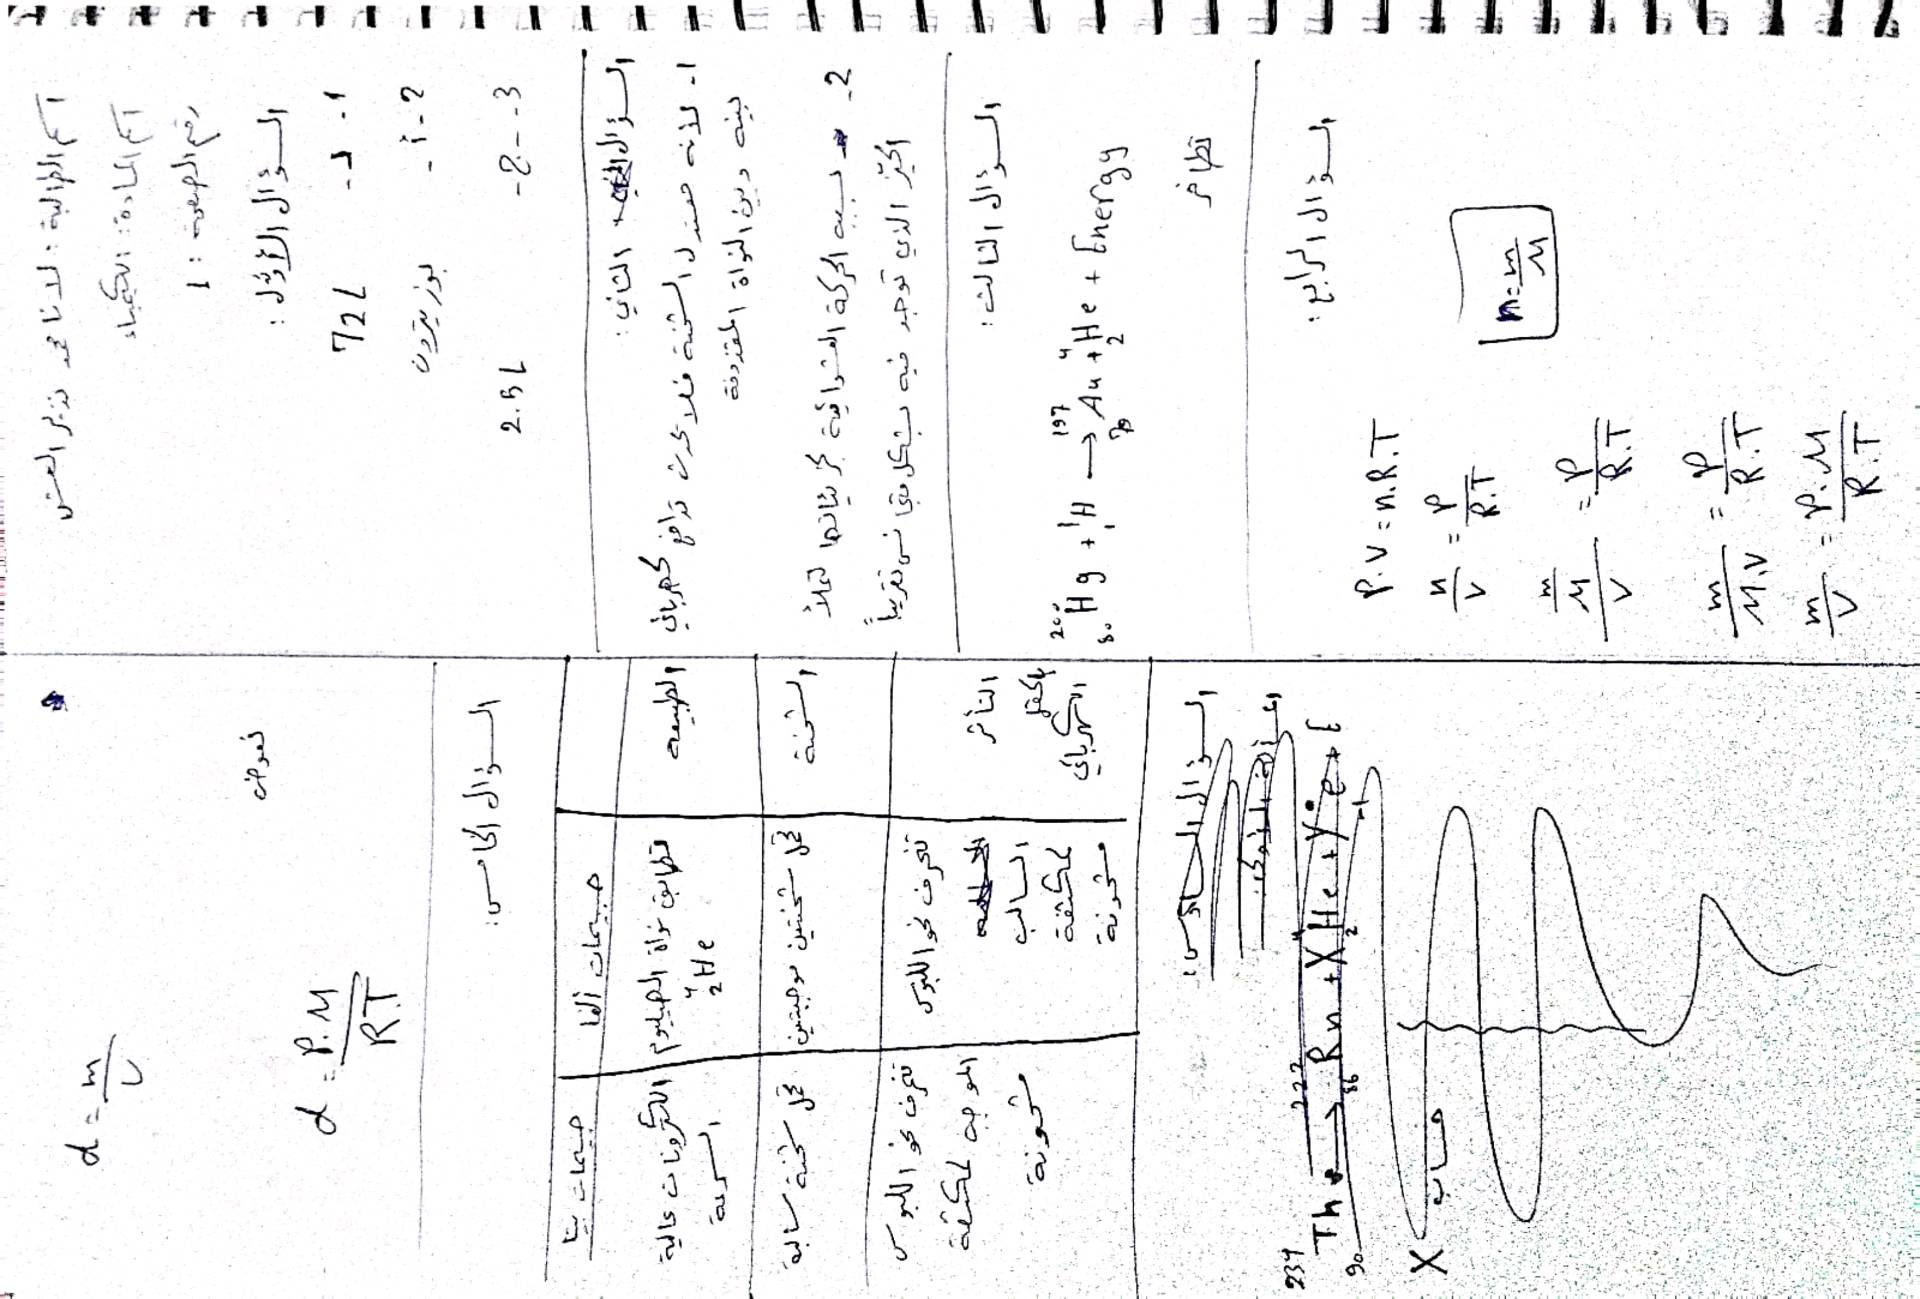 اسم الطالبة: لانا محمد نذير العش
اسم المادة: الكيمياء
رقم الصفحة: 1
السؤال الأول:
1- د- 72L
2- أ- بوزيترون
3- ج- 2.5L
السؤال الثاني:
1- لأنه معتدل الشحنة فلا يحدث تدافع كهربائي
بينه وبين النواة المقذوفة
2- بسبب الحركة العشوائية لجزيئاتها لتملأ
الحيّز الذي توجد فيه بشكل متجانس تقريباً
السؤال الثالث:
²⁰⁰₈₀Hg + ¹₁H → ¹⁹⁷₇₉Au + ⁴₂He + Energy
تطافر
السؤال الرابع:
P.V = n.R.T
n/V = P/R.T
n = m/M
m/M/V = P/R.T
m/M.V = P/R.T
m/V = P.M/R.T
d = m/V
نعوض
d = P.M/R.T
السؤال الخامس:
جسيمات ألفا جسيمات بيتا
الطبيعة تطابق نواة الهيليوم ⁴₂He الكترونات عالية السرعة
الشحنة تحمل شحنتين موجبتين تحمل شحنة سالبة
التأثر بالحقل الكهربائي تنحرف نحو اللبوس السالب لمكثفة مشحونة تنحرف نحو اللبوس الموجب لمكثفة مشحونة
السؤال السادس:
²³⁴₉₀Th → ²²²₈₆Rn + X⁴₂He + Y⁰₋₁e + E
حساب X